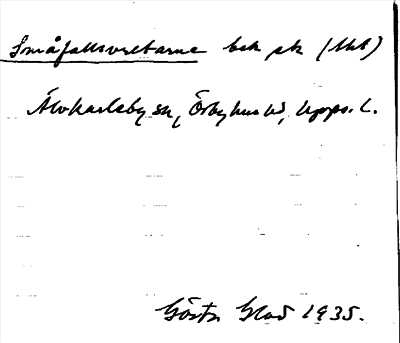 Småfallsvretarna bek sk (1hl)
Älvkarleby sn, Örbyhus hd, Upps. l.
Gösta Blad 1935.